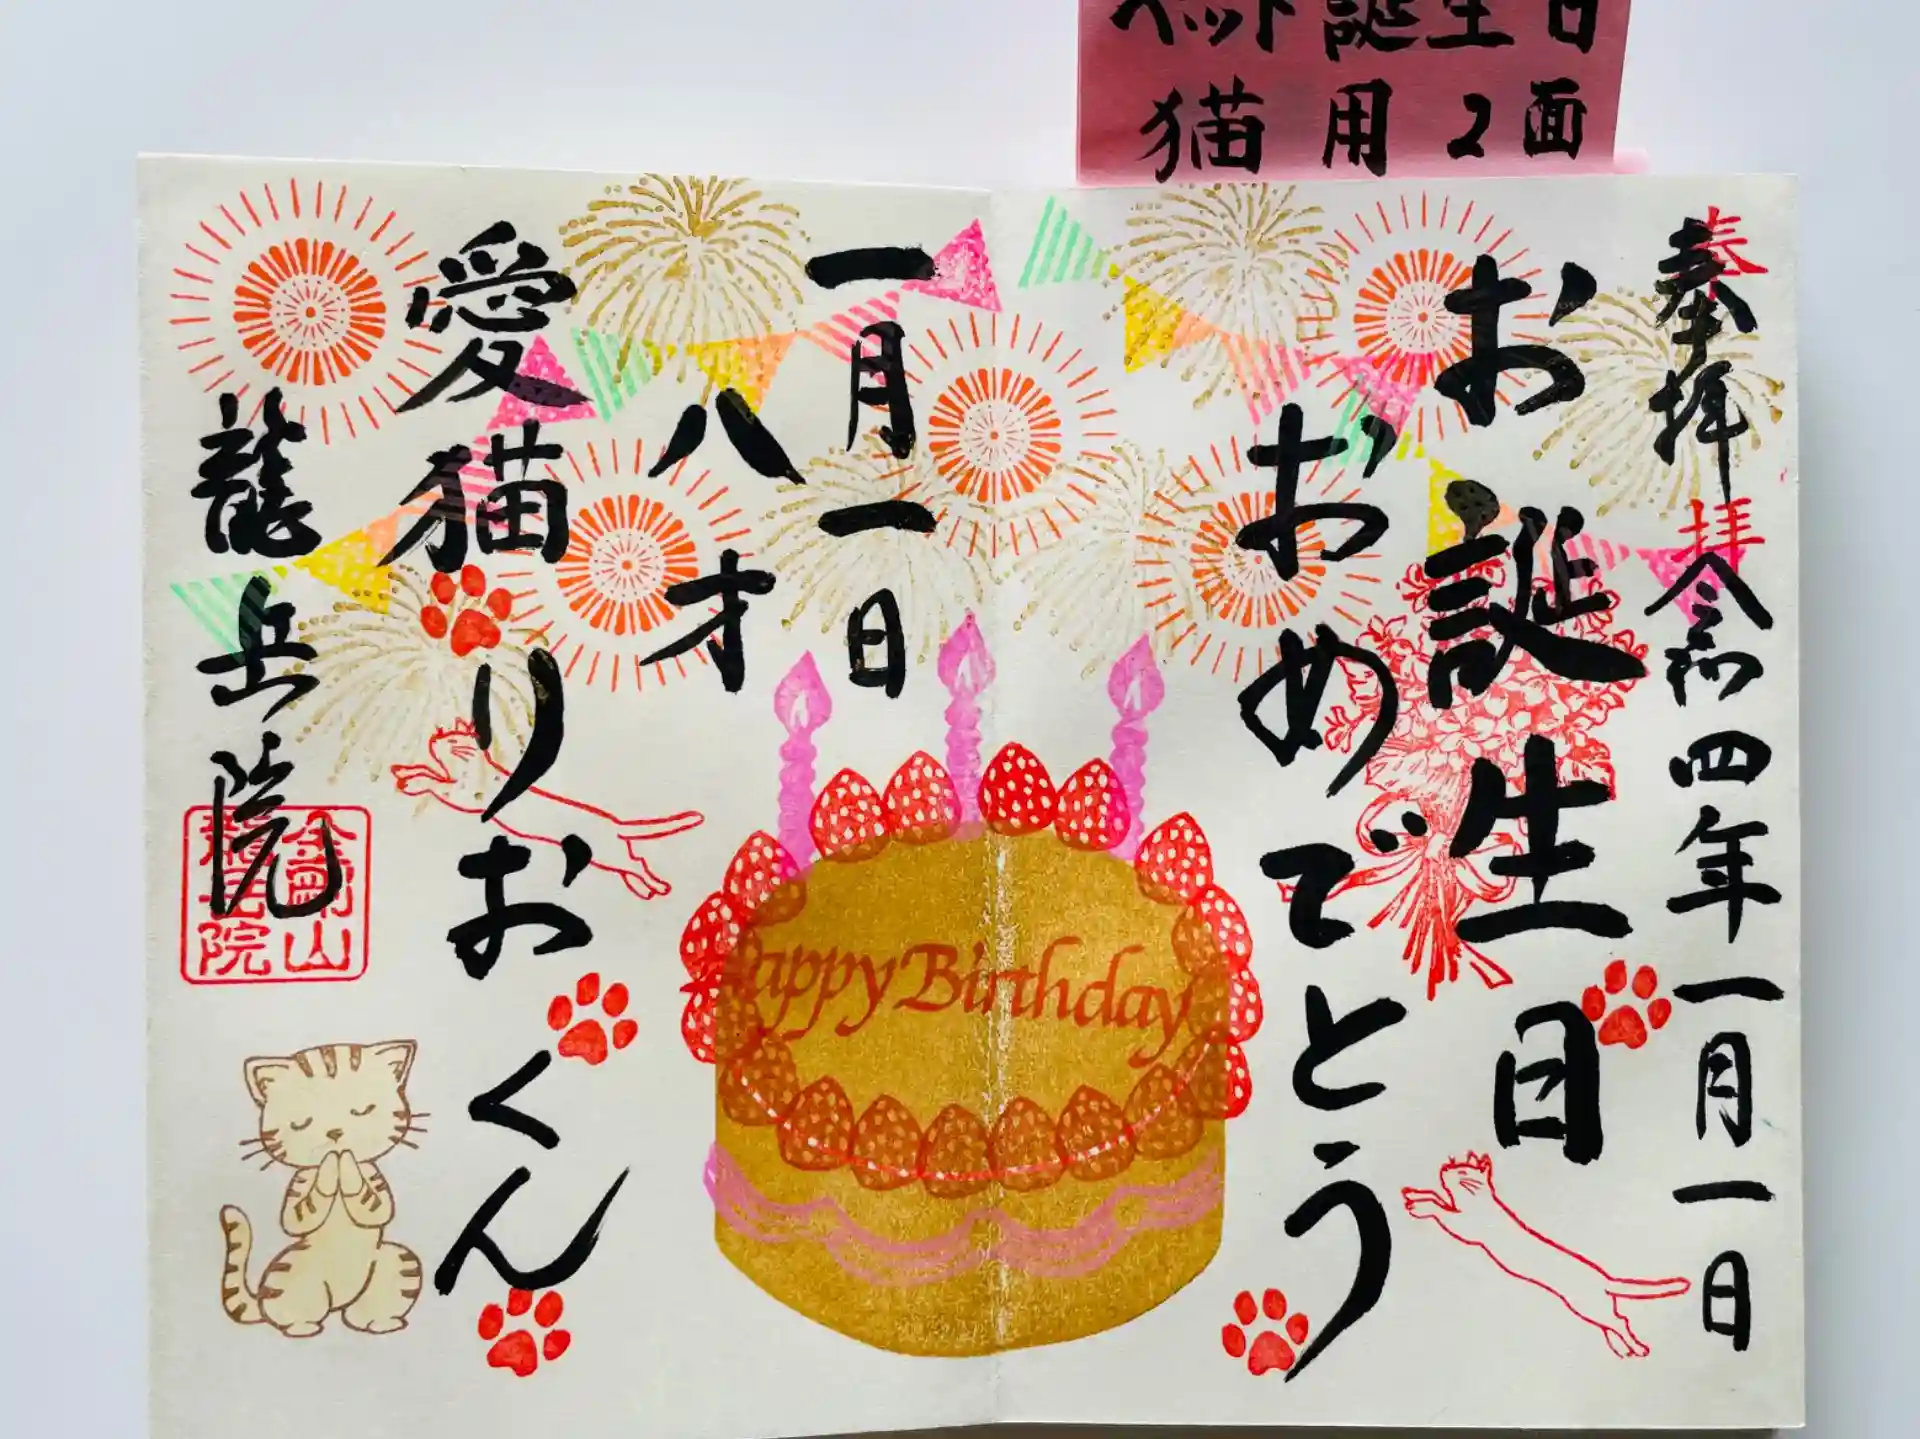 ペット誕生日
猫用2面
奉拝
奉拝
令和四年一月一日
お誕生日
おめでとう
一月一日
八才
愛猫りおくん
龍岳院
金剛山
龍岳院
Happy Birthday